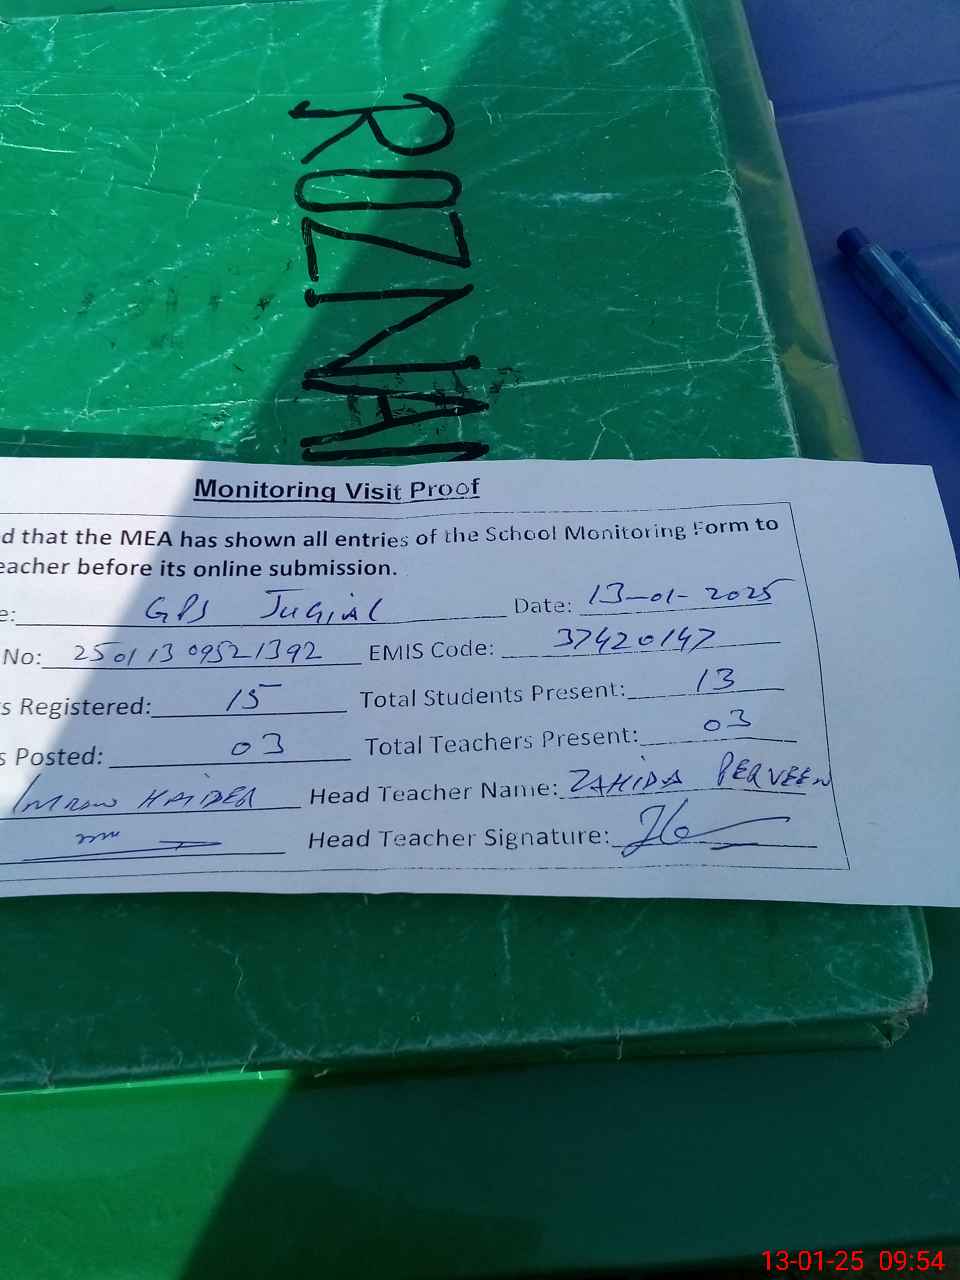 ROZNA
Monitoring Visit Proof
d that the MEA has shown all entries of the School Monitoring Form to
eacher before its online submission.
e: GPS Jugial Date: 13-01-2025
No: 25011309521392 EMIS Code: 37420147
s Registered: 15 Total Students Present: 13
s Posted: 03 Total Teachers Present: 03
Imran HAIDER Head Teacher Name: ZAHIDA PERVEEN
Head Teacher Signature:
13-01-25 09:54